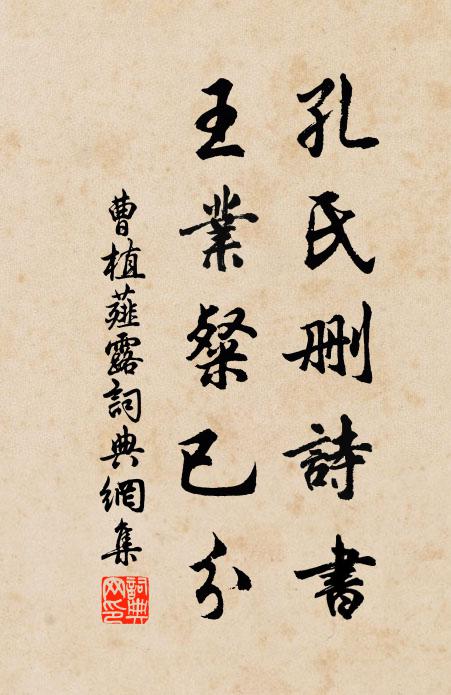 孔氏刪詩書
王業粲已分
曹植薤露詞典網集
詞典网印